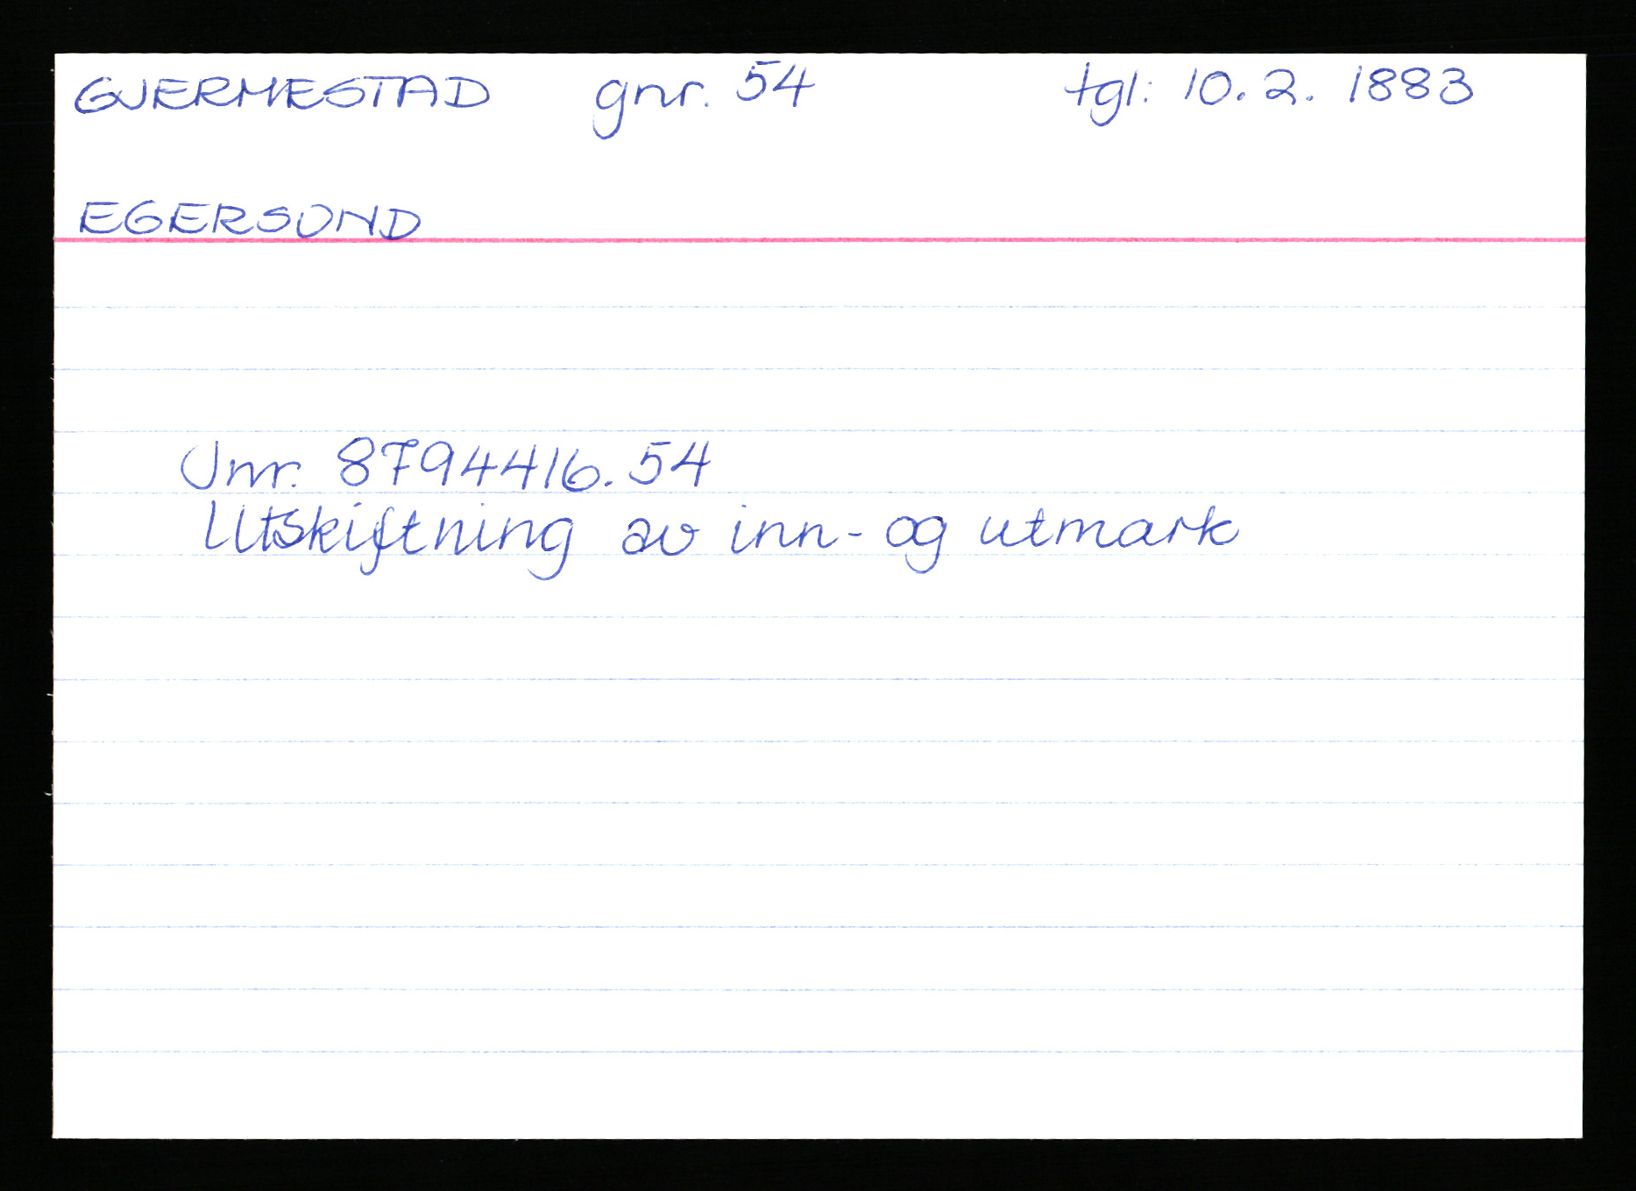 GJERMESTAD gnr. 54 tgl: 10. 2. 1883
EGERSUND
Jnr. 8794416.54
Utskiftning av inn- og utmark